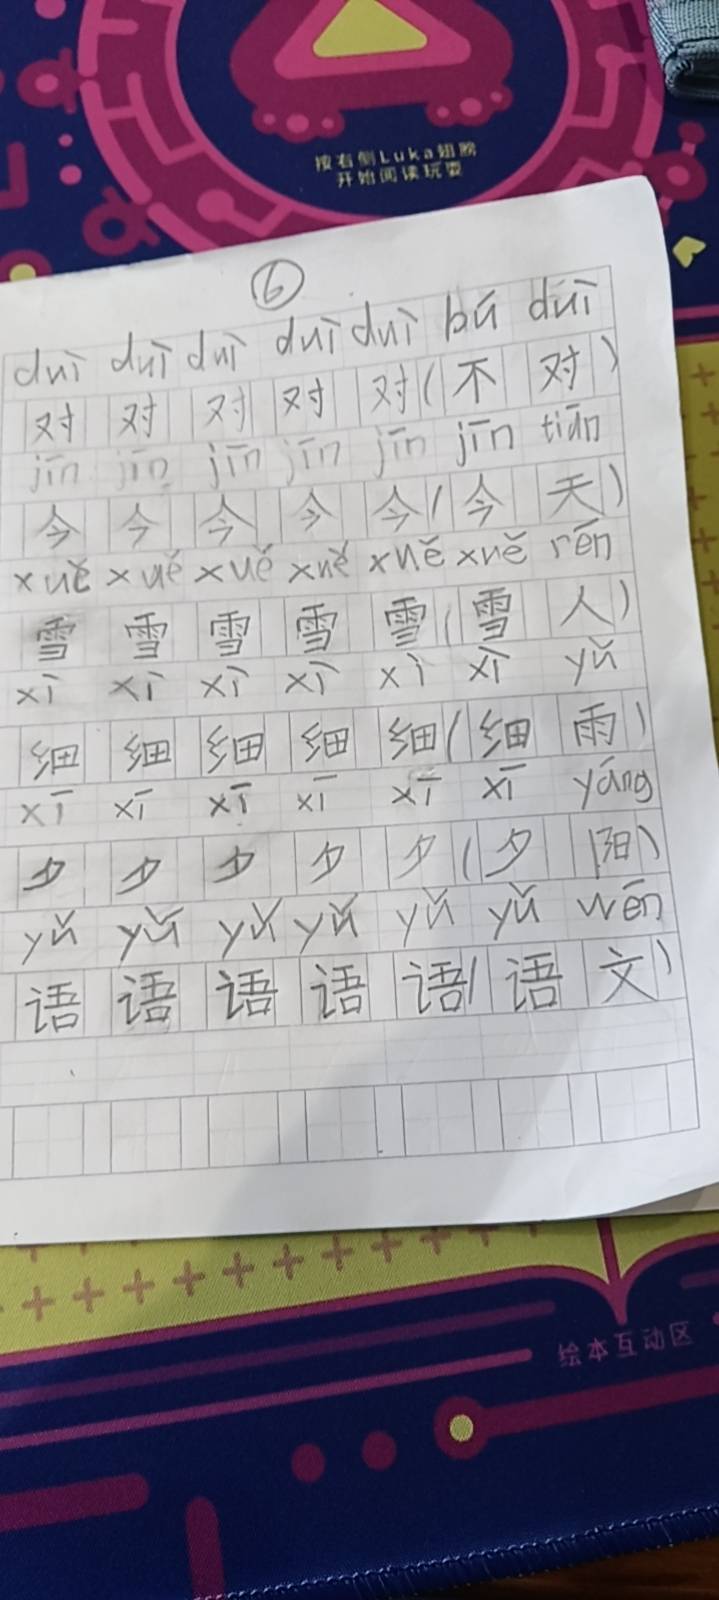 按右侧Luka翅膀
开始阅读玩耍
6
duì duì duì duì duì bú duì
对 对 对 对 对(不 对)
jīn jīn jīn jīn jīn jīn tiān
今 今 今 今 今(今 天)
xuě xuě xuě xuě xuě xuě rén
雪 雪 雪 雪 雪(雪 人)
xì xì xì xì xì xì yǔ
细 细 细 细 细(细 雨)
xī xī xī xī xī xī yáng
夕 夕 夕 夕 夕(夕 阳)
yǔ yǔ yǔ yǔ yǔ yǔ wén
语 语 语 语 语(语 文)
绘本互动区